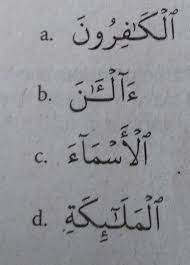 a. ٱلۡكَٰفِرُونَ
b. ءَآلۡـَٰٔنَ
c. ٱلۡأَسۡمَآءَ
d. ٱلۡمَلَٰٓئِكَةِ